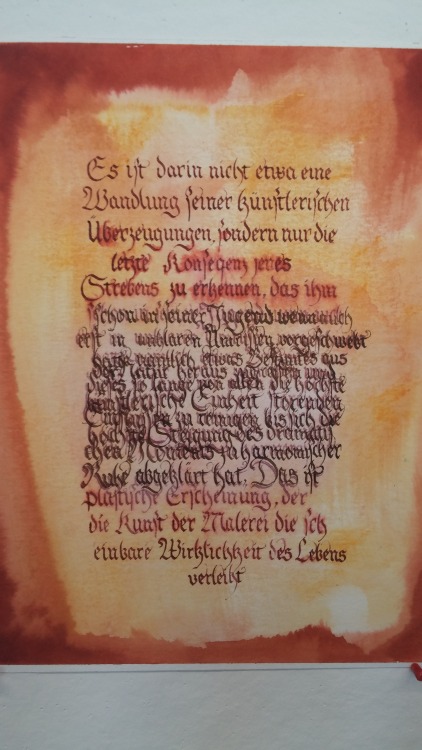 Es ist darin nicht etwa eine
Wandlung seiner künstlerischen
Überzeugungen, sondern nur die
letzte Konseqenz jenes
Strebens zu erkennen, das ihm
schon in seiner Jugend wenn auch
erst in unklaren Umrissen vorgeschwebt
hatte nämlich etwas Bestimtes aus
der Natur heraus und
dieses so lange von allen die höchste
künstlerische Einheit störenden
zu reinigen bis sich die
höchste Steigung des dramatis
chen Moments zu harmonischer
Ruhe abgeklärt hat. Das ist
plastische Erscheinung, der
die Kunst der Malerei die sch
einbare Wirklichkeit des Lebens
verleiht